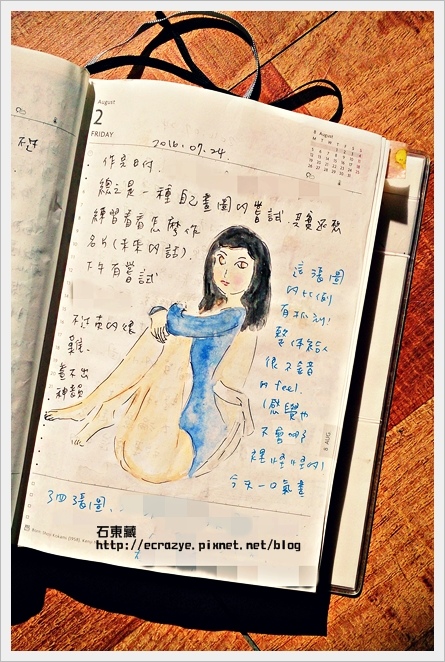 August
2
FRIDAY
8 August
2016.07.24.
總之是一種自己畫圖的嘗試.其實還想
練習看看怎麼作
名片(未來的話).
下午有嘗試
不過真的很
難.
畫不出
神韻
這張圖
的比例
有抓到!
整体給人
很不錯
的 feel.
(感覺也
不會哪
裡怪怪的!
今天一口氣畫
了四張圖.
8 AUG
石東藏
http://ecrazye.pixnet.net/blog